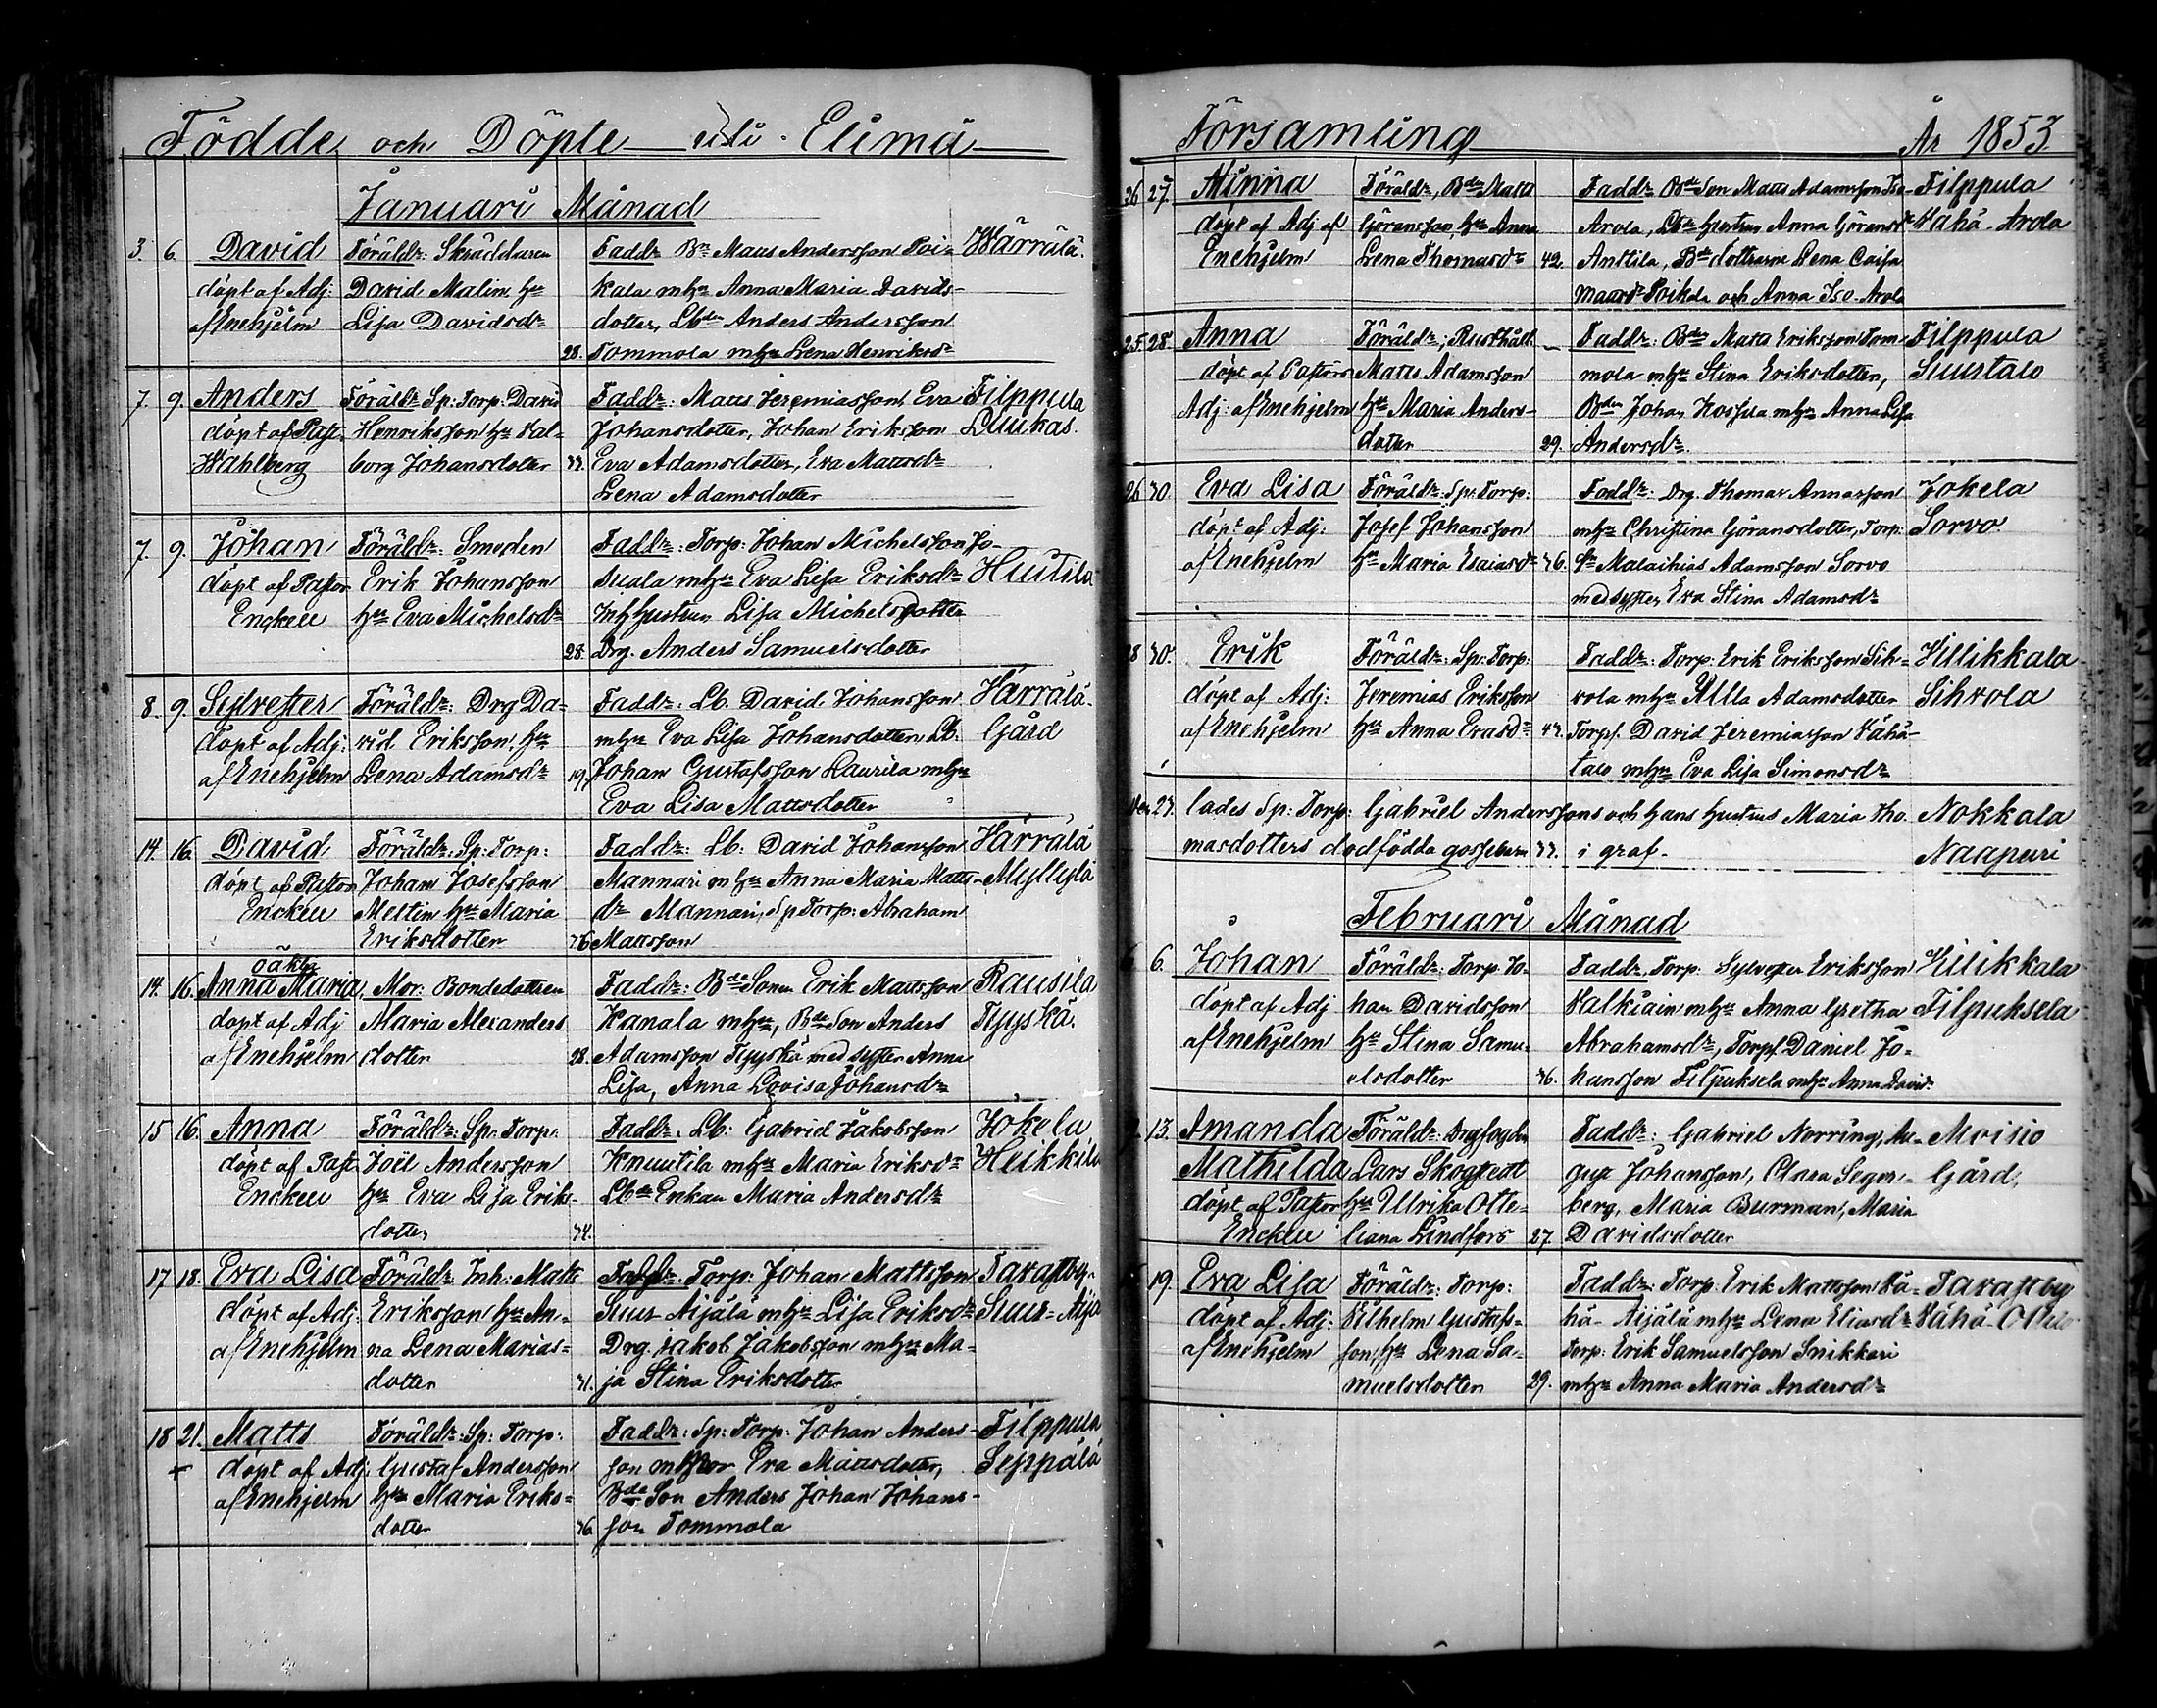 Födde och Döpte uti Elimä
Januari Månad
3. 6. David
döpt af Adj:
af Enehjelm
Föräldr: Skräddaren
David Malin, hu
Lisa Davidsdr
28.
Faddr Bn Matts Andersson Poi-
kala mhu Anna Maria Davids-
dotter, Lbden Anders Andersson
Tommola mhu Lena Henriksdr
Härrälä.
7. 9. Anders
döpt af Past.
Wahlberg
Föräldr Sp: Torp: David
Henriksson hu Val-
borg Johansdotter
Faddr: Matts Jeremiasson, Eva
Johansdotter, Johan Eriksson
Eva Adamsdotter, Eva Mattsdr
Lena Adamsdotter
Filppula
Luukas.
7. 9. Johan
döpt af Pastor
Enckell
Föräldr: Smeden
Erik Johansson
hu Eva Michelsdr
28.
Faddr: Torp: Johan Michelsson Jo-
mhu Eva Lisa Eriksdr
Inh hustrun Lisa Michelsdotter
Drg. Anders Samuelsdotter
Huutila
8. 9. Sylvester
döpt af Adj:
af Enehjelm
Föräldr: Drg Da-
vid Eriksson, hu
Lena Adamsdr
19.
Faddr: Lb. David Johansson
mhu Eva Lisa Johansdotter, Lb.
Johan Gustafsson Laurila mhu
Eva Lisa Mattsdotter
Härrälä
Gård
14. 16. David
döpt af Pastor
Enckell
Föräldr: Sp: Torp:
Johan Josefsson
Meltin hu Maria
Eriksdotter
36
Faddr: Lb: David Johansson
Mannari mhu Anna Maria Matts-
dr Mannari, Sp Torp: Abraham
Mattsson
Härrälä
Myllylä
14. 16. oäkta
Anna Maria
döpt af Adj
af Enehjelm
Mor: Bondedottren
Maria Alexanders
dotter
28.
Faddr: Bde Sonen Erik Mattsson
Kanala mhu, Bde Son Anders
Adamsson Tyyskä med syster Anna
Lisa, Anna Lovisa Johansdr
Rausila
Tyyskä.
15 16. Anna
döpt af Past.
Enckell
Föräldr: Sp: Torp:
Joël Andersson
hu Eva Lisa Eriks-
dotter
34.
Faddr: Lb: Gabriel Jakobsson
Knuutila mhu Maria Eriksdr
Lbde Enkan Maria Andersdr
Jokela
Heikkilä
17 18. Eva Lisa
döpt af Adj:
af Enehjelm
Föräldr: Inh: Matts
Eriksson hu An-
na Lena Marias-
dotter
31.
Faddr. Torp: Johan Mattsson
Suur Aijälä mhu Lisa Eriksdr
Drg. Jakob Jakobsson mhu Ma-
ja Stina Eriksdotter
Tavastby
Suur-Aijä
18 21. Matts
döpt af Adj
af Enehjelm
Föräldr: Sp: Torp:
Gustaf Andersson
hu Maria Eriks-
dotter
36.
Faddr: Sp: Torp: Johan Anders-
son mMor Eva Mattsdotter,
Bde Son Anders Johan Johans-
son Tommola
Filppula
Seppälä
Församling År 1853.
26 27. Minna
döpt af Adj af
Enehjelm
Föräldr, Bden Matts
Göransson, hu Anna
Lena Thomasdr
42.
Faddr Bde Son Matts Adamsson Iso-
Arola, Lbde hustrun Anna Göransdr
Anttila, Bde dottrarne Lena Caisa
Poikala och Anna Iso-Arola
Filppula
Vähä-Arola
25. 28. Anna
döpt af Pastors
Adj: af Enehjelm
Föräldr; Rusthåll.
Matts Adamsson
hu Maria Anders-
dotter
29.
Faddr: Bden Matts Eriksson Tom-
mola mhu Stina Eriksdotter,
Bden Johan mhu Anna Lisa
Andersdr.
Filppula
Suurtalo
26 30 Eva Lisa
döpt af Adj:
af Enehjelm
Föräldr: Sp: Torp:
Josef Johansson
hu Maria Esaiasdr
36.
Faddr: Drg. Thomas Annasson
mhu Christina Göransdotter, Torp:
Sn Malakias Adamsson Sorvo
med syster Eva Stina Adamsdr
Jokela
Sorvo
28 30. Erik
döpt af Adj:
af Enehjelm
Föräldr: Sp: Torp:
Jeremias Eriksson
hu Anna Evasdr
43.
Faddr: Torp: Erik Eriksson Sih-
vola mhu Ulla Adamsdotter
Torps. David Jeremiasson Vähä-
talo mhu Eva Lisa Simonsdr
Villikkala
Sihvola
Den 27. lades Sp: Torp: Gabriel Anderssons och hans hustrus Maria Tho-
masdotters dödfödda gossebarn 33. i graf.
Nokkala
Naapuri
Februari Månad
6. Johan
döpt af Adj
af Enehjelm
Föräldr: Torp: Jo-
han Davidsson
hu Stina Samu-
elsdotter
36.
Faddr. Torp: Sylvester Eriksson
Valkiain mhu Anna Gretha
Abrahamsdr, Torps. Daniel Jo-
hansson Filpuksela mhu Anna David-
Villikkala
Filpuksela
13. Amanda
Mathilda
döpt af Pastor
Enckell
Föräldr: Drgfogden
Lars Skogstedt
hu Ullrika Otte-
liana Lindfors
27.
Faddr: Gabriel Norring, Au-
gust Johansson, Clara Seger-
berg, Maria Burman, Maria
Davidsdotter
Moisio
Gård,
19. Eva Lisa
döpt af Adj:
af Enehjelm
Föräldr: Torp:
Vilhelm Gustafs-
son, hu Lena Sa-
muelsdotter
29.
Faddr: Torp: Erik Mattsson Vä-
hä-Aijälä mhu Lena Eliasdr
Torp: Erik Samuelsson Snikkari
mhu Anna Maria Andersdr
Tavastby
Vähä-Ollila